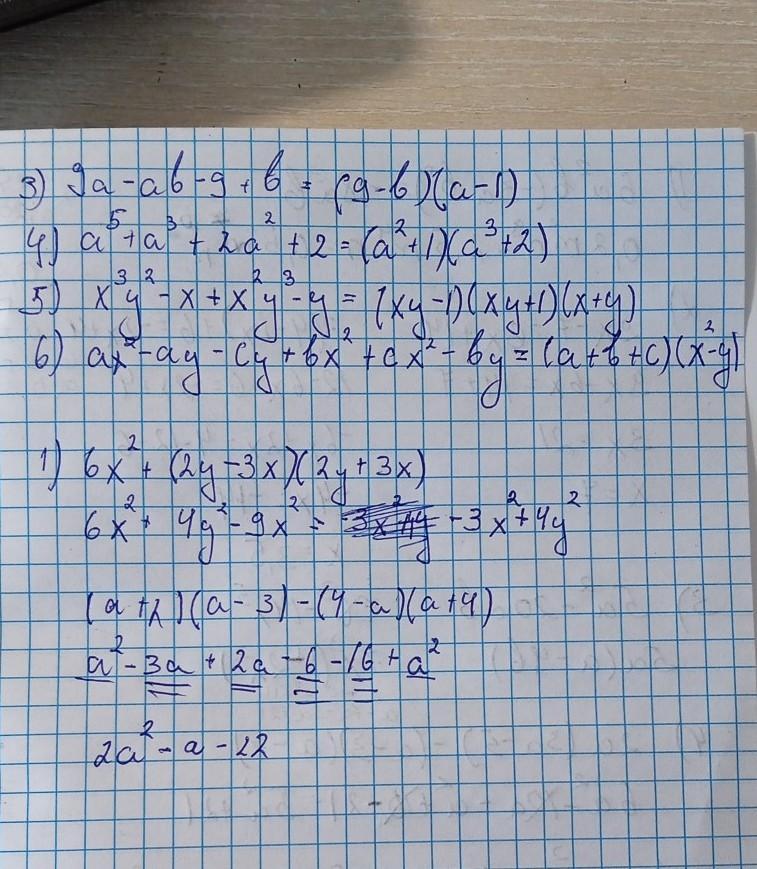 3) 9a - ab - 9 + b = (9 - b)(a - 1)
4) a⁵ + a³ + 2a² + 2 = (a² + 1)(a³ + 2)
5) x³y² - x + x²y³ - y = (xy - 1)(xy + 1)(x + y)
6) ax² - ay - cy + bx² + cx² - by = (a + b + c)(x² - y)
1) 6x² + (2y - 3x)(2y + 3x)
6x² + 4y² - 9x² = -3x² + 4y²
(a + 2)(a - 3) - (4 - a)(a + 4)
a² - 3a + 2a - 6 - 16 + a²
2a² - a - 22